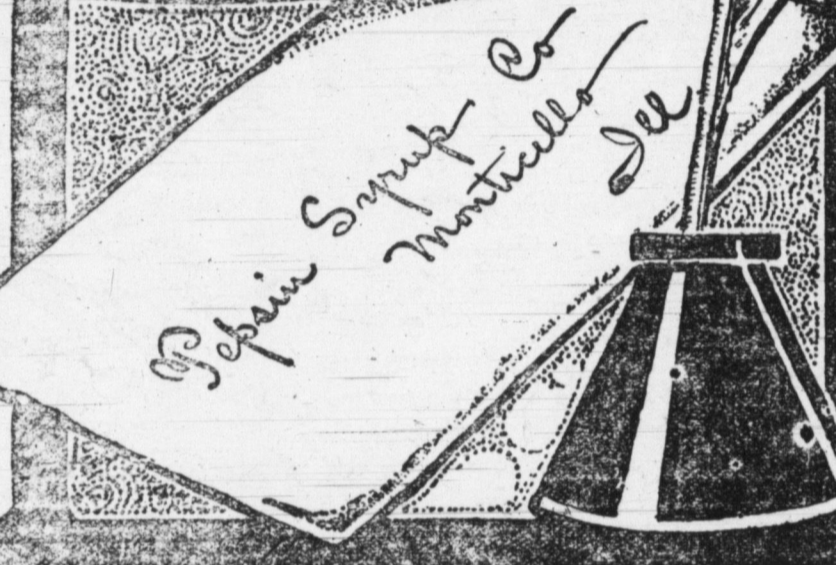 Pepsin Syrup Co
Monticello
Ill